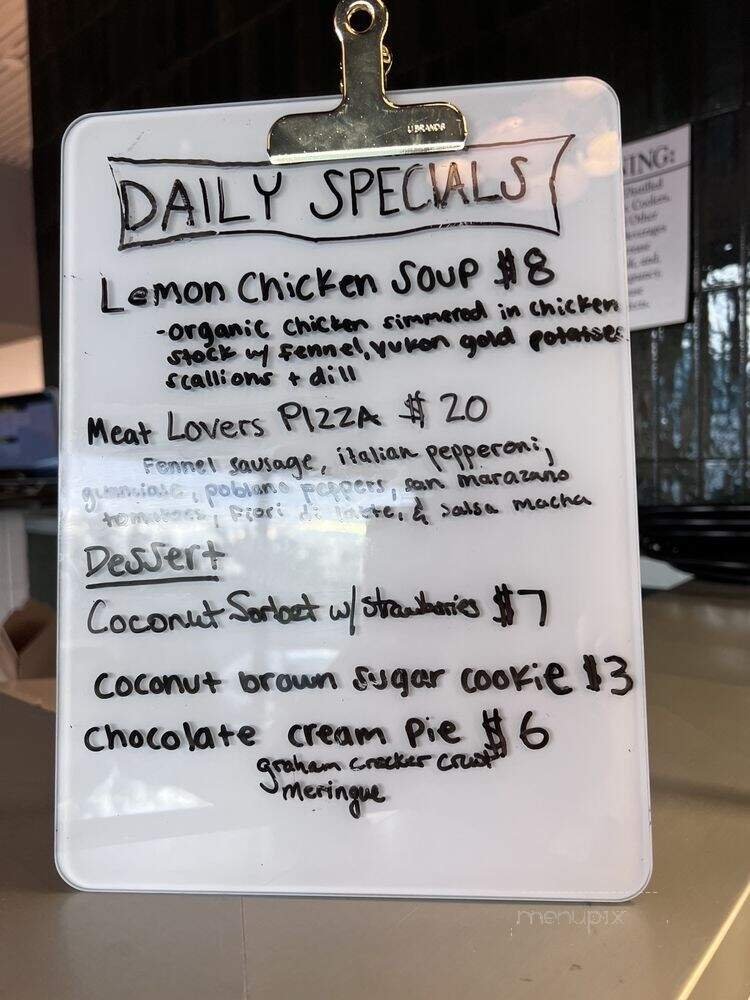 U BRANDS
DAILY SPECIALS
Lemon Chicken Soup $8
-organic chicken simmered in chicken
stock w/ fennel, yukon gold potatoes
scallions + dill
Meat Lovers PIZZA $20
Fennel sausage, italian pepperoni,
guanciale, poblano peppers, san marazano
tomatoes, Fiori di latte, & salsa macha
Dessert
Coconut Sorbet w/ strawberries $7
coconut brown sugar cookie $3
chocolate cream Pie $6
graham cracker crust
Meringue
NING:
Distilled
Coolers,
Other
menupix